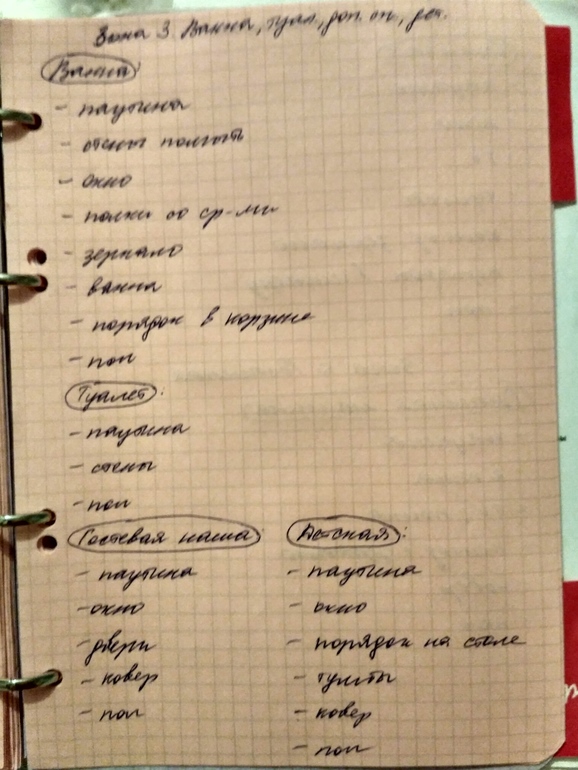 Зона 3. Ванна, туал., доп. сп., дет.
Ванна:
- паутина
- стены помыть
- окно
- полки со ср-ми
- зеркало
- ванна
- порядок в корзине
- пол
Туалет:
- паутина
- стены
- пол
Гостевая наша:
- паутина
- окно
- двери
- ковер
- пол
Детская:
- паутина
- окно
- порядок на столе
- тумбы
- ковер
- пол